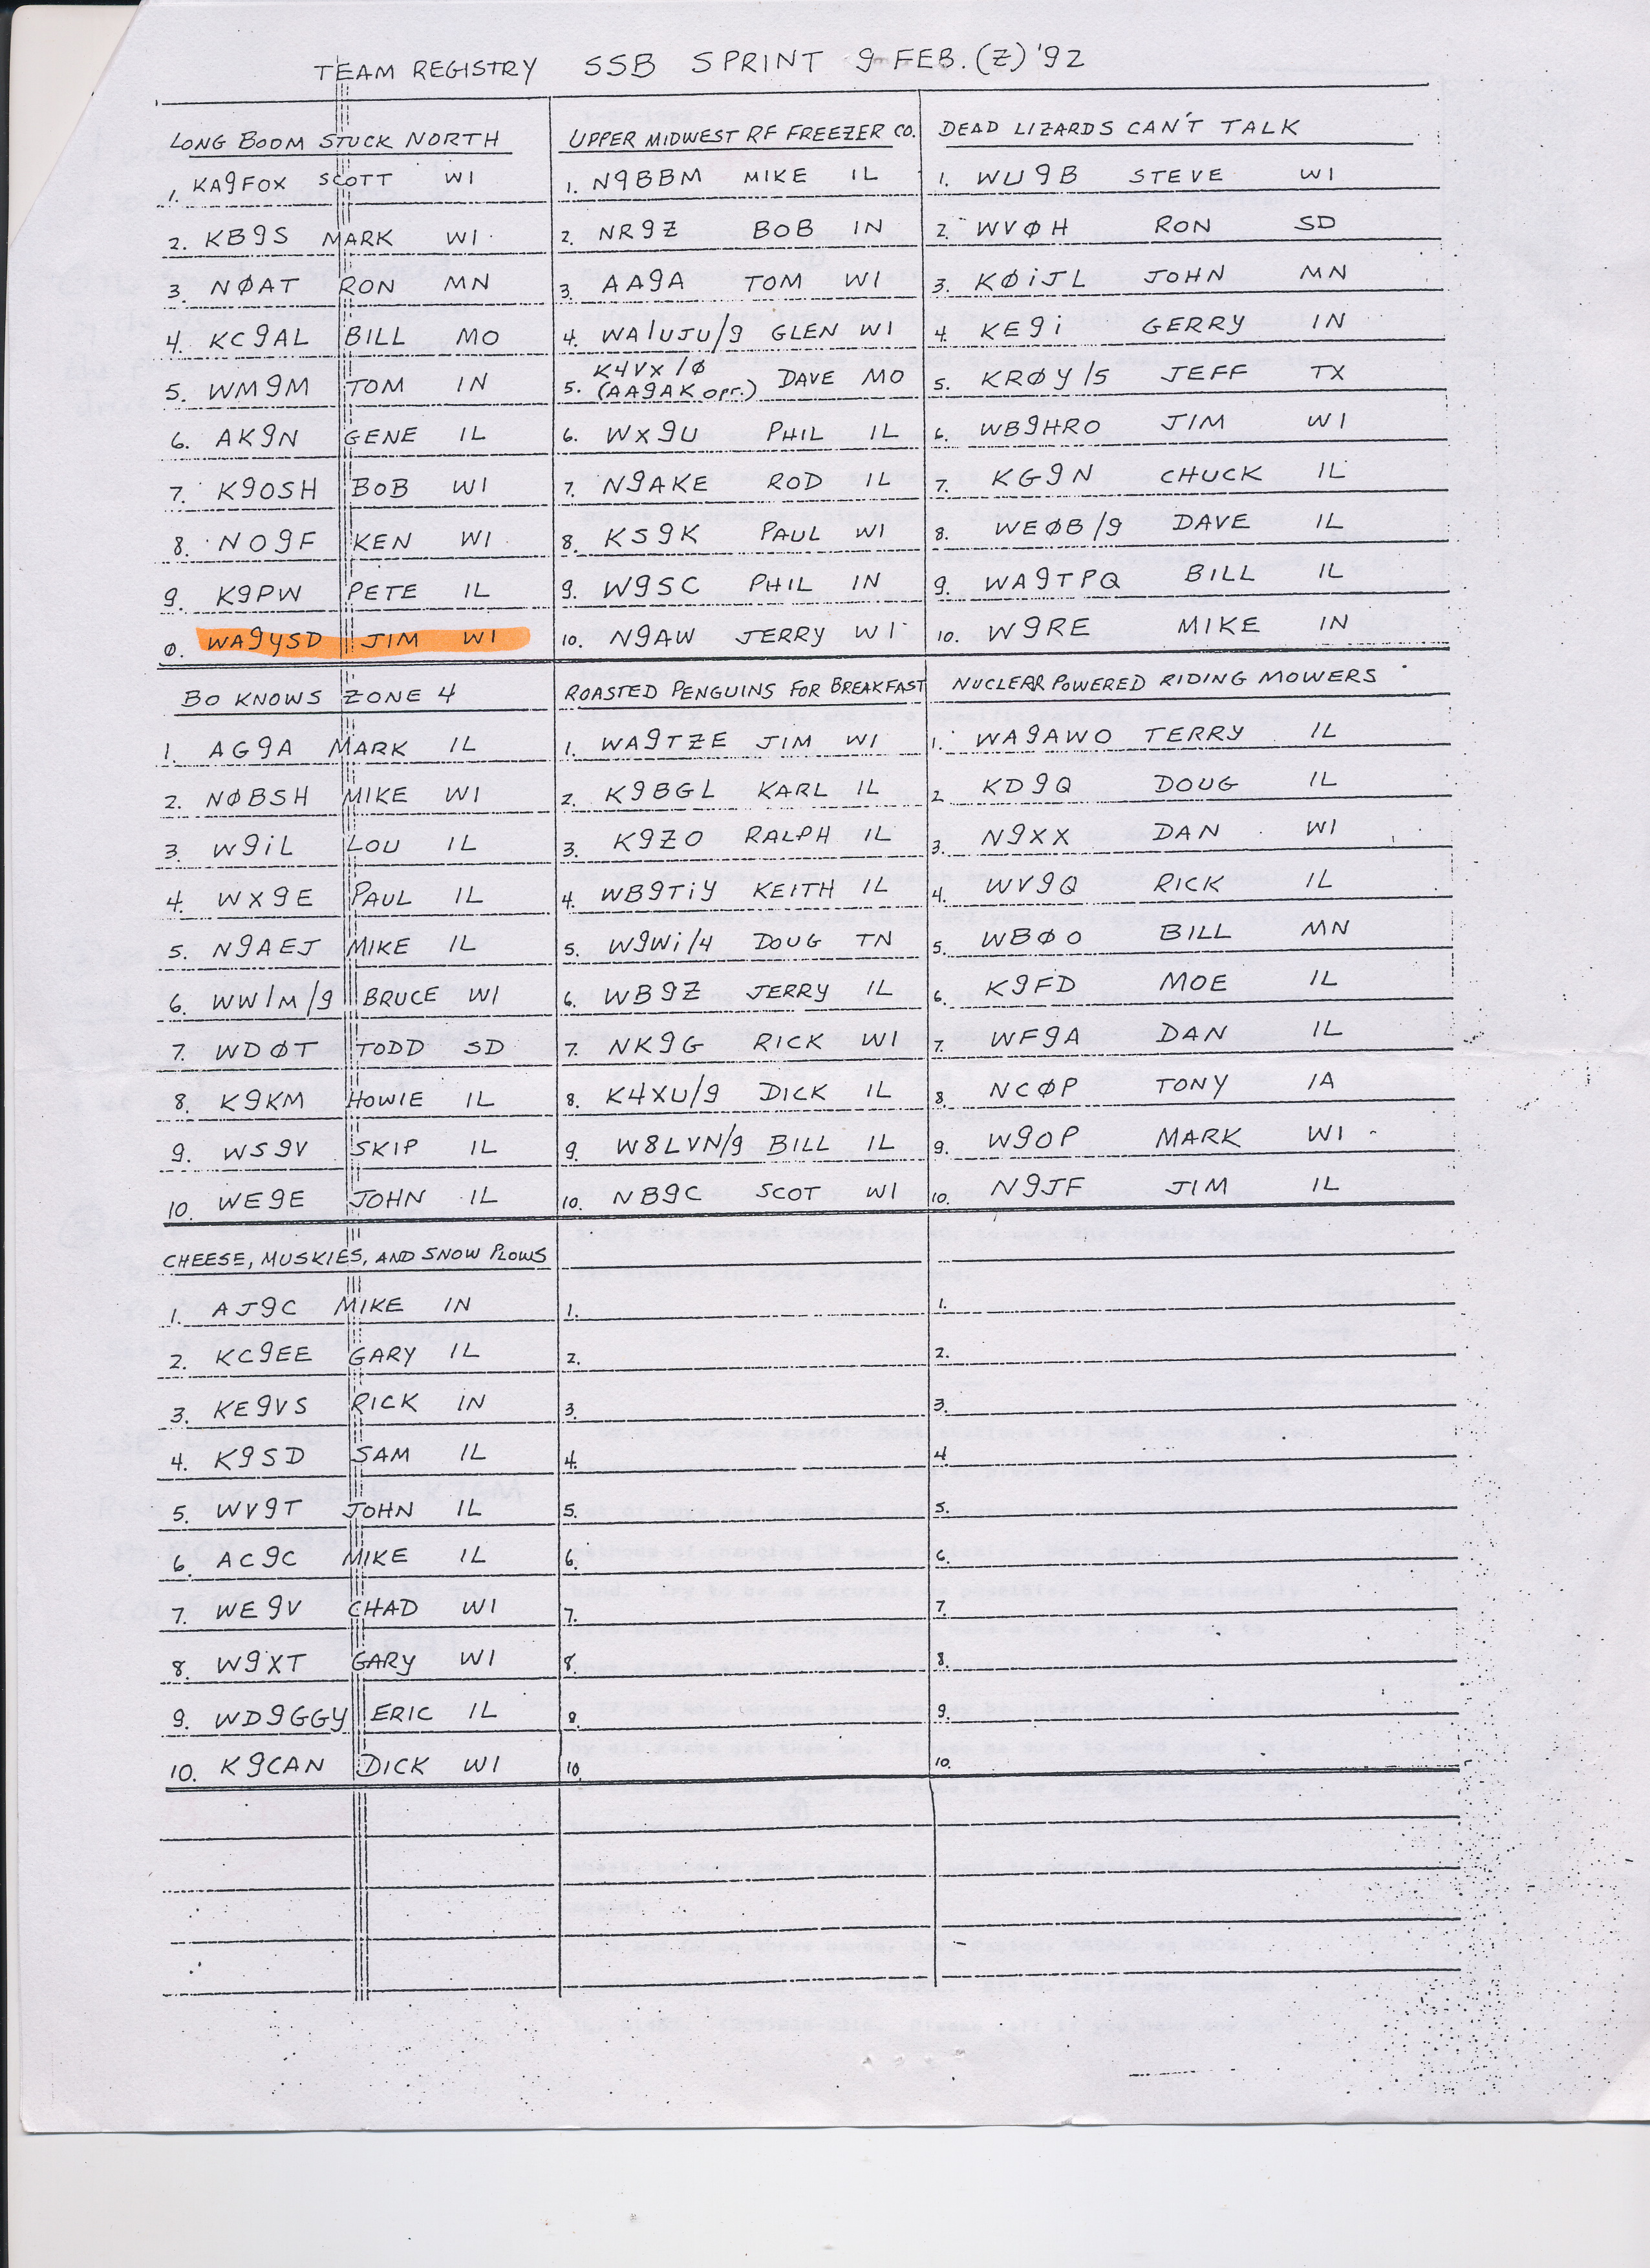 TEAM REGISTRY SSB SPRINT 9 FEB. (Z) '92
LONG BOOM STUCK NORTH
1. KA9FOX SCOTT WI
2. KB9S MARK WI
3. NØAT RON MN
4. KC9AL BILL MO
5. WM9M TOM IN
6. AK9N GENE IL
7. K9OSH BOB WI
8. NO9F KEN WI
9. K9PW PETE IL
0. WA9YSD JIM WI
UPPER MIDWEST RF FREEZER CO.
1. N9BBM MIKE IL
2. NR9Z BOB IN
3. AA9A TOM WI
4. WA1UJU/9 GLEN WI
K4VX/Ø
5. (AA9AK opr.) DAVE MO
6. WX9U PHIL IL
7. N9AKE ROD IL
8. KS9K PAUL WI
9. W9SC PHIL IN
10. N9AW JERRY WI
DEAD LIZARDS CAN'T TALK
1. WU9B STEVE WI
2. WVØH RON SD
3. KØiJL JOHN MN
4. KE9i GERRY IN
5. KRØY/5 JEFF TX
6. WB9HRO JIM WI
7. KG9N CHUCK IL
8. WEØB/9 DAVE IL
9. WA9TPQ BILL IL
10. W9RE MIKE IN
BO KNOWS ZONE 4
1. AG9A MARK IL
2. NØBSH MIKE WI
3. W9iL LOU IL
4. WX9E PAUL IL
5. N9AEJ MIKE IL
6. WW1M/9 BRUCE WI
7. WDØT TODD SD
8. K9KM HOWIE IL
9. WS9V SKIP IL
10. WE9E JOHN IL
ROASTED PENGUINS FOR BREAKFAST
1. WA9TZE JIM WI
2. K9BGL KARL IL
3. K9ZO RALPH IL
4. WB9TiY KEITH IL
5. W9Wi/4 DOUG TN
6. WB9Z JERRY IL
7. NK9G RICK WI
8. K4XU/9 DICK IL
9. W8LVN/9 BILL IL
10. NB9C SCOT WI
NUCLEAR POWERED RIDING MOWERS
1. WA9AWO TERRY IL
2 KD9Q DOUG IL
3. N9XX DAN WI
4. WV9Q RICK IL
5. WBØO BILL MN
6. K9FD MOE IL
7. WF9A DAN IL
8. NCØP TONY IA
9. W9OP MARK WI
10. N9JF JIM IL
CHEESE, MUSKIES, AND SNOW PLOWS
1. AJ9C MIKE IN
2. KC9EE GARY IL
3. KE9VS RICK IN
4. K9SD SAM IL
5. WV9T JOHN IL
6. AC9C MIKE IL
7. WE9V CHAD WI
8. W9XT GARY WI
9. WD9GGY ERIC IL
10. K9CAN DICK WI
1.
2.
3.
4.
5.
6.
7.
8.
9
10.
1.
2.
3.
4
5.
6.
7.
8.
9.
10.